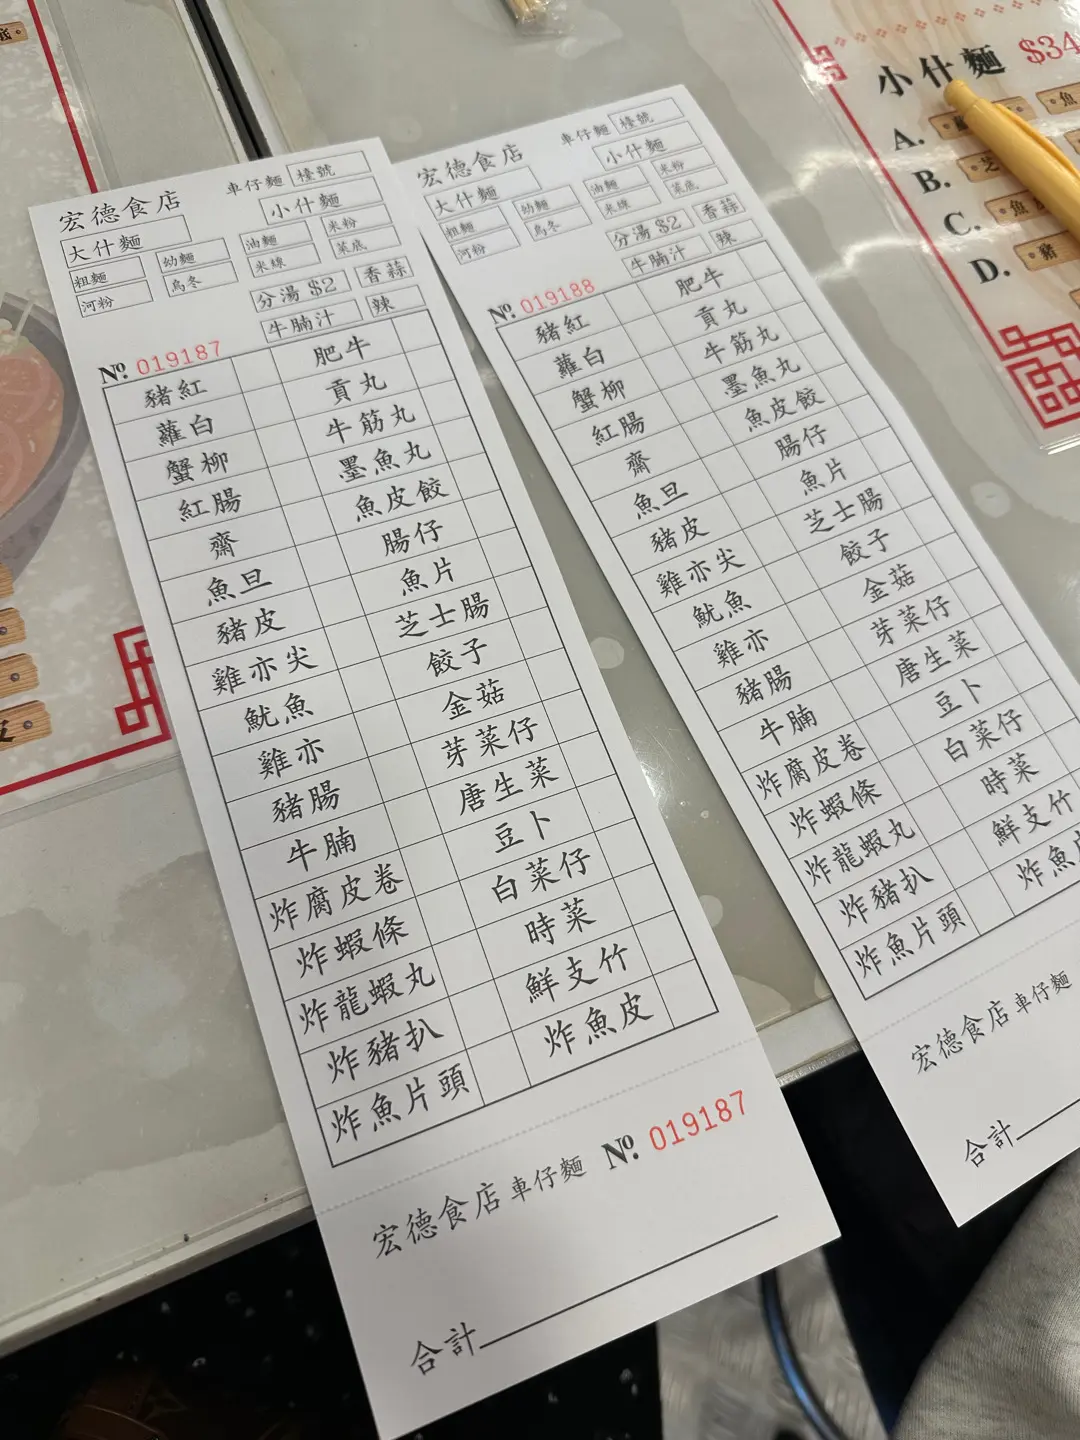 宏德食店 車仔麵 檯號
大什麵 小什麵
粗麵 幼麵 油麵 米粉
河粉 烏冬 米線 菜底
分湯 $2 香蒜
牛腩汁 辣
№ 019187
豬紅 肥牛
蘿白 貢丸
蟹柳 牛筋丸
紅腸 墨魚丸
齋 魚皮餃
魚旦 腸仔
豬皮 魚片
雞亦尖 芝士腸
魷魚 餃子
雞亦 金菇
豬腸 芽菜仔
牛腩 唐生菜
炸腐皮卷 豆卜
炸蝦條 白菜仔
炸龍蝦丸 時菜
炸豬扒 鮮支竹
炸魚片頭 炸魚皮
宏德食店 車仔麵 № 019187
合計
宏德食店 車仔麵 檯號
大什麵 小什麵
粗麵 幼麵 油麵 米粉
河粉 烏冬 米線 菜底
分湯 $2 香蒜
牛腩汁 辣
№ 019188
豬紅 肥牛
蘿白 貢丸
蟹柳 牛筋丸
紅腸 墨魚丸
齋 魚皮餃
魚旦 腸仔
豬皮 魚片
雞亦尖 芝士腸
魷魚 餃子
雞亦 金菇
豬腸 芽菜仔
牛腩 唐生菜
炸腐皮卷 豆卜
炸蝦條 白菜仔
炸龍蝦丸 時菜
炸豬扒 鮮支竹
炸魚片頭 炸魚
宏德食店 車仔麵
合計
小什麵 $34
A. 魚
B. 芝
C. 魚
D. 豬